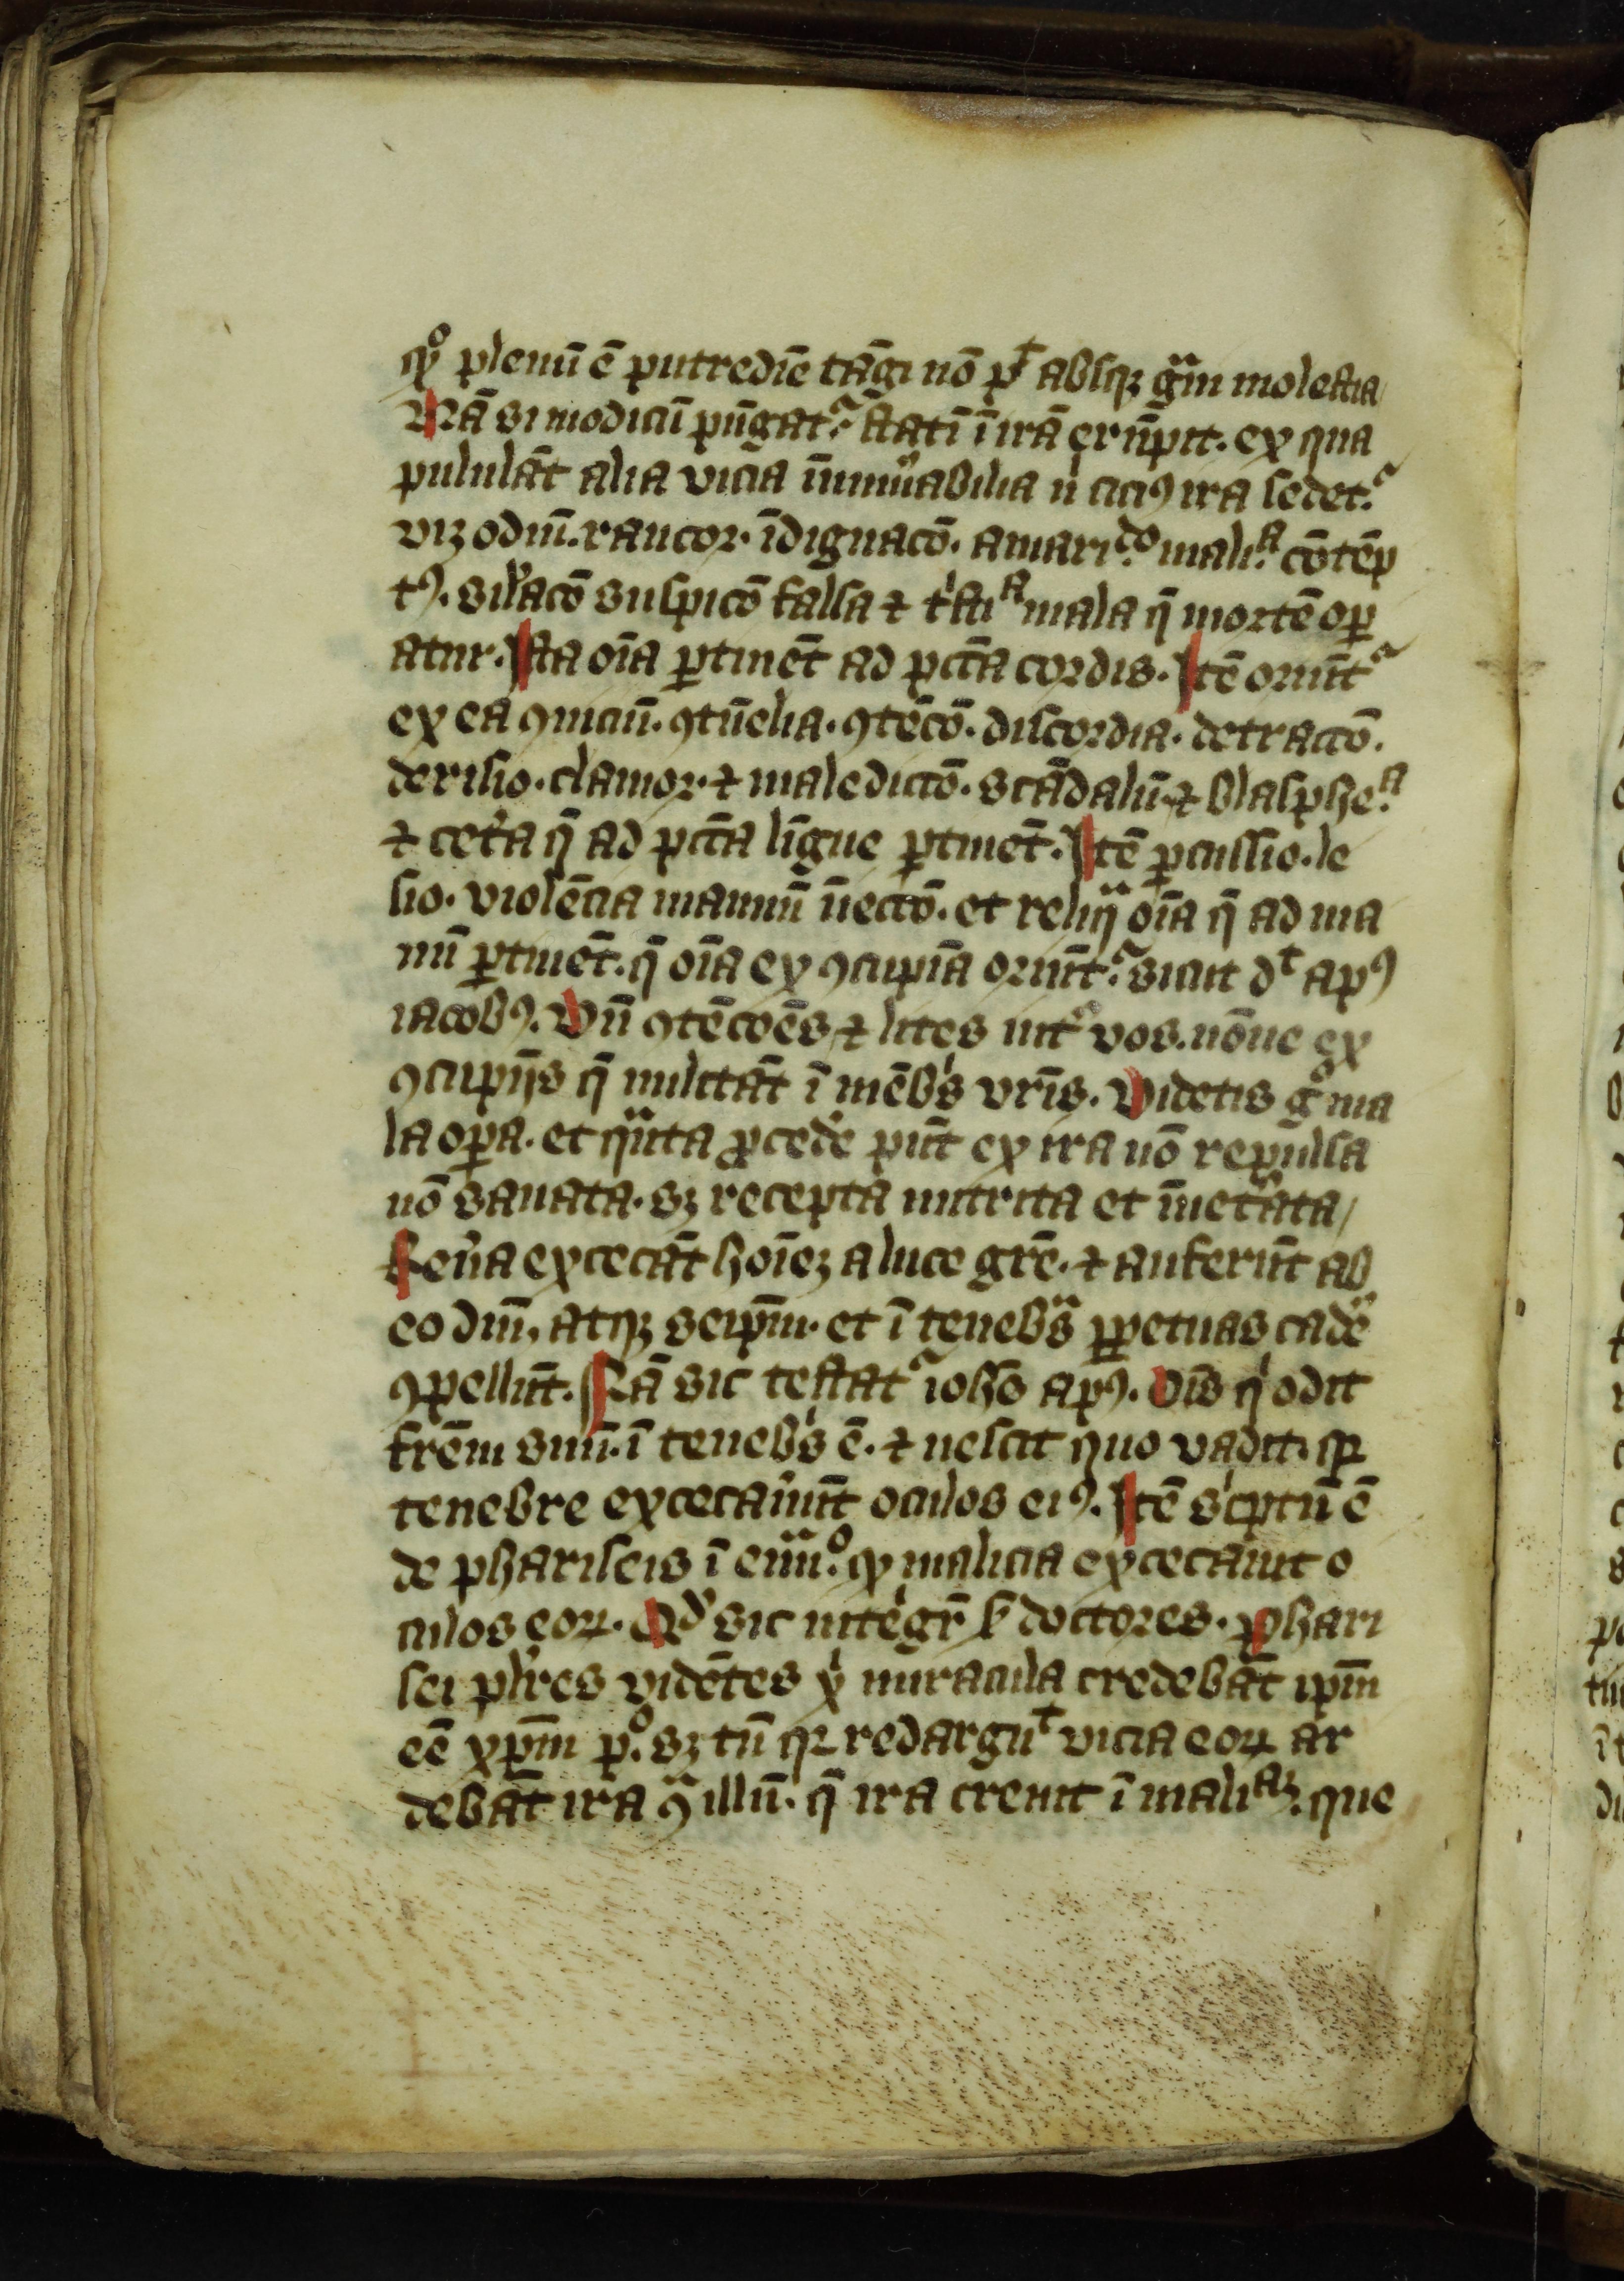 qͦ plenū ē putredīe tāgi nō pᵗ absqꝫ gᵃui molestia
Nā si modicū pūgatᷣ statī ī irā erūpit. ex qua
pululāt alia vicia īnumͣabilia nͥ ciciꝰ ira sedetᷣ.
viꝫ odiū. rancor. īdignacō. amariᵈᵒ. maliᵃ. cōtēp
tꝰ. sil̛acō suspicō falsa ⁊ tͥstiᵃ mala q̄ mortē oꝑ
atur. Ista oīa ꝑtinēt ad pctā cordis. Itē oriūtᷣ
ex ea ꝯuiciū. ꝯtūelia. ꝯtēcō. discordia. detractō.
derisio. clamor. ⁊ maledictō. scādalū ⁊ blasphe.ᵃ
⁊ cet̛a q̄ ad pctā līgue ꝑtinēt. Itē ꝑcussio. le
sio. violēcia manuū īiectō. et reliqᵃ oīa q̄ ad ma
nū ꝑtinēt. q̄ oīa ex ꝯcupīa oriūtᷣ. sicut dᵗ apꝰ
iacobꝰ. Vn̄ ꝯtēcōēs ⁊ lites int̛ vos. nōne ex
ꝯcupijs q̄ militāt ī mēbͥs vr̄is. Videtis gͦ ma
la oꝑa. et qᵃnta ꝓced̛e pn̄t ex ira nō repulsa
nō sanata. sꝫ recepta nutrita et īuet̛ata/
Seua excecāt hoīeꝫ a luce gr̄e. ⁊ auferūt ab
eo dm̄, atqꝫ seipm̄. et ī tenebᵃs ꝑpetuas cad̛e
ꝯpellūt. Nā sic testatᷣ ioh̄o apꝰ. Oīs qͥ odit
frēm suū. ī tenebͥs ē. ⁊ nescit quo vadit. qꝛ
tenebre excecaưūt oculos eiꝰ. Itē scͥptū ē
de phariseis ī euuͦ. qꝛ malicia excecauit o
culos eoꝝ. Qd̛ sic inte̛gr̄ ẜ doctores. Phari
sei pl̛res vidētes xͥ miracula credebāt ipm̄
eē xpm̄ pͦ. sꝫ tn̄ qꝛ redarguᵗ vicia eoꝝ ar
debāt ira ꝯᵃ illū. q̄ ira creuit ī maliᵃꝫ. que